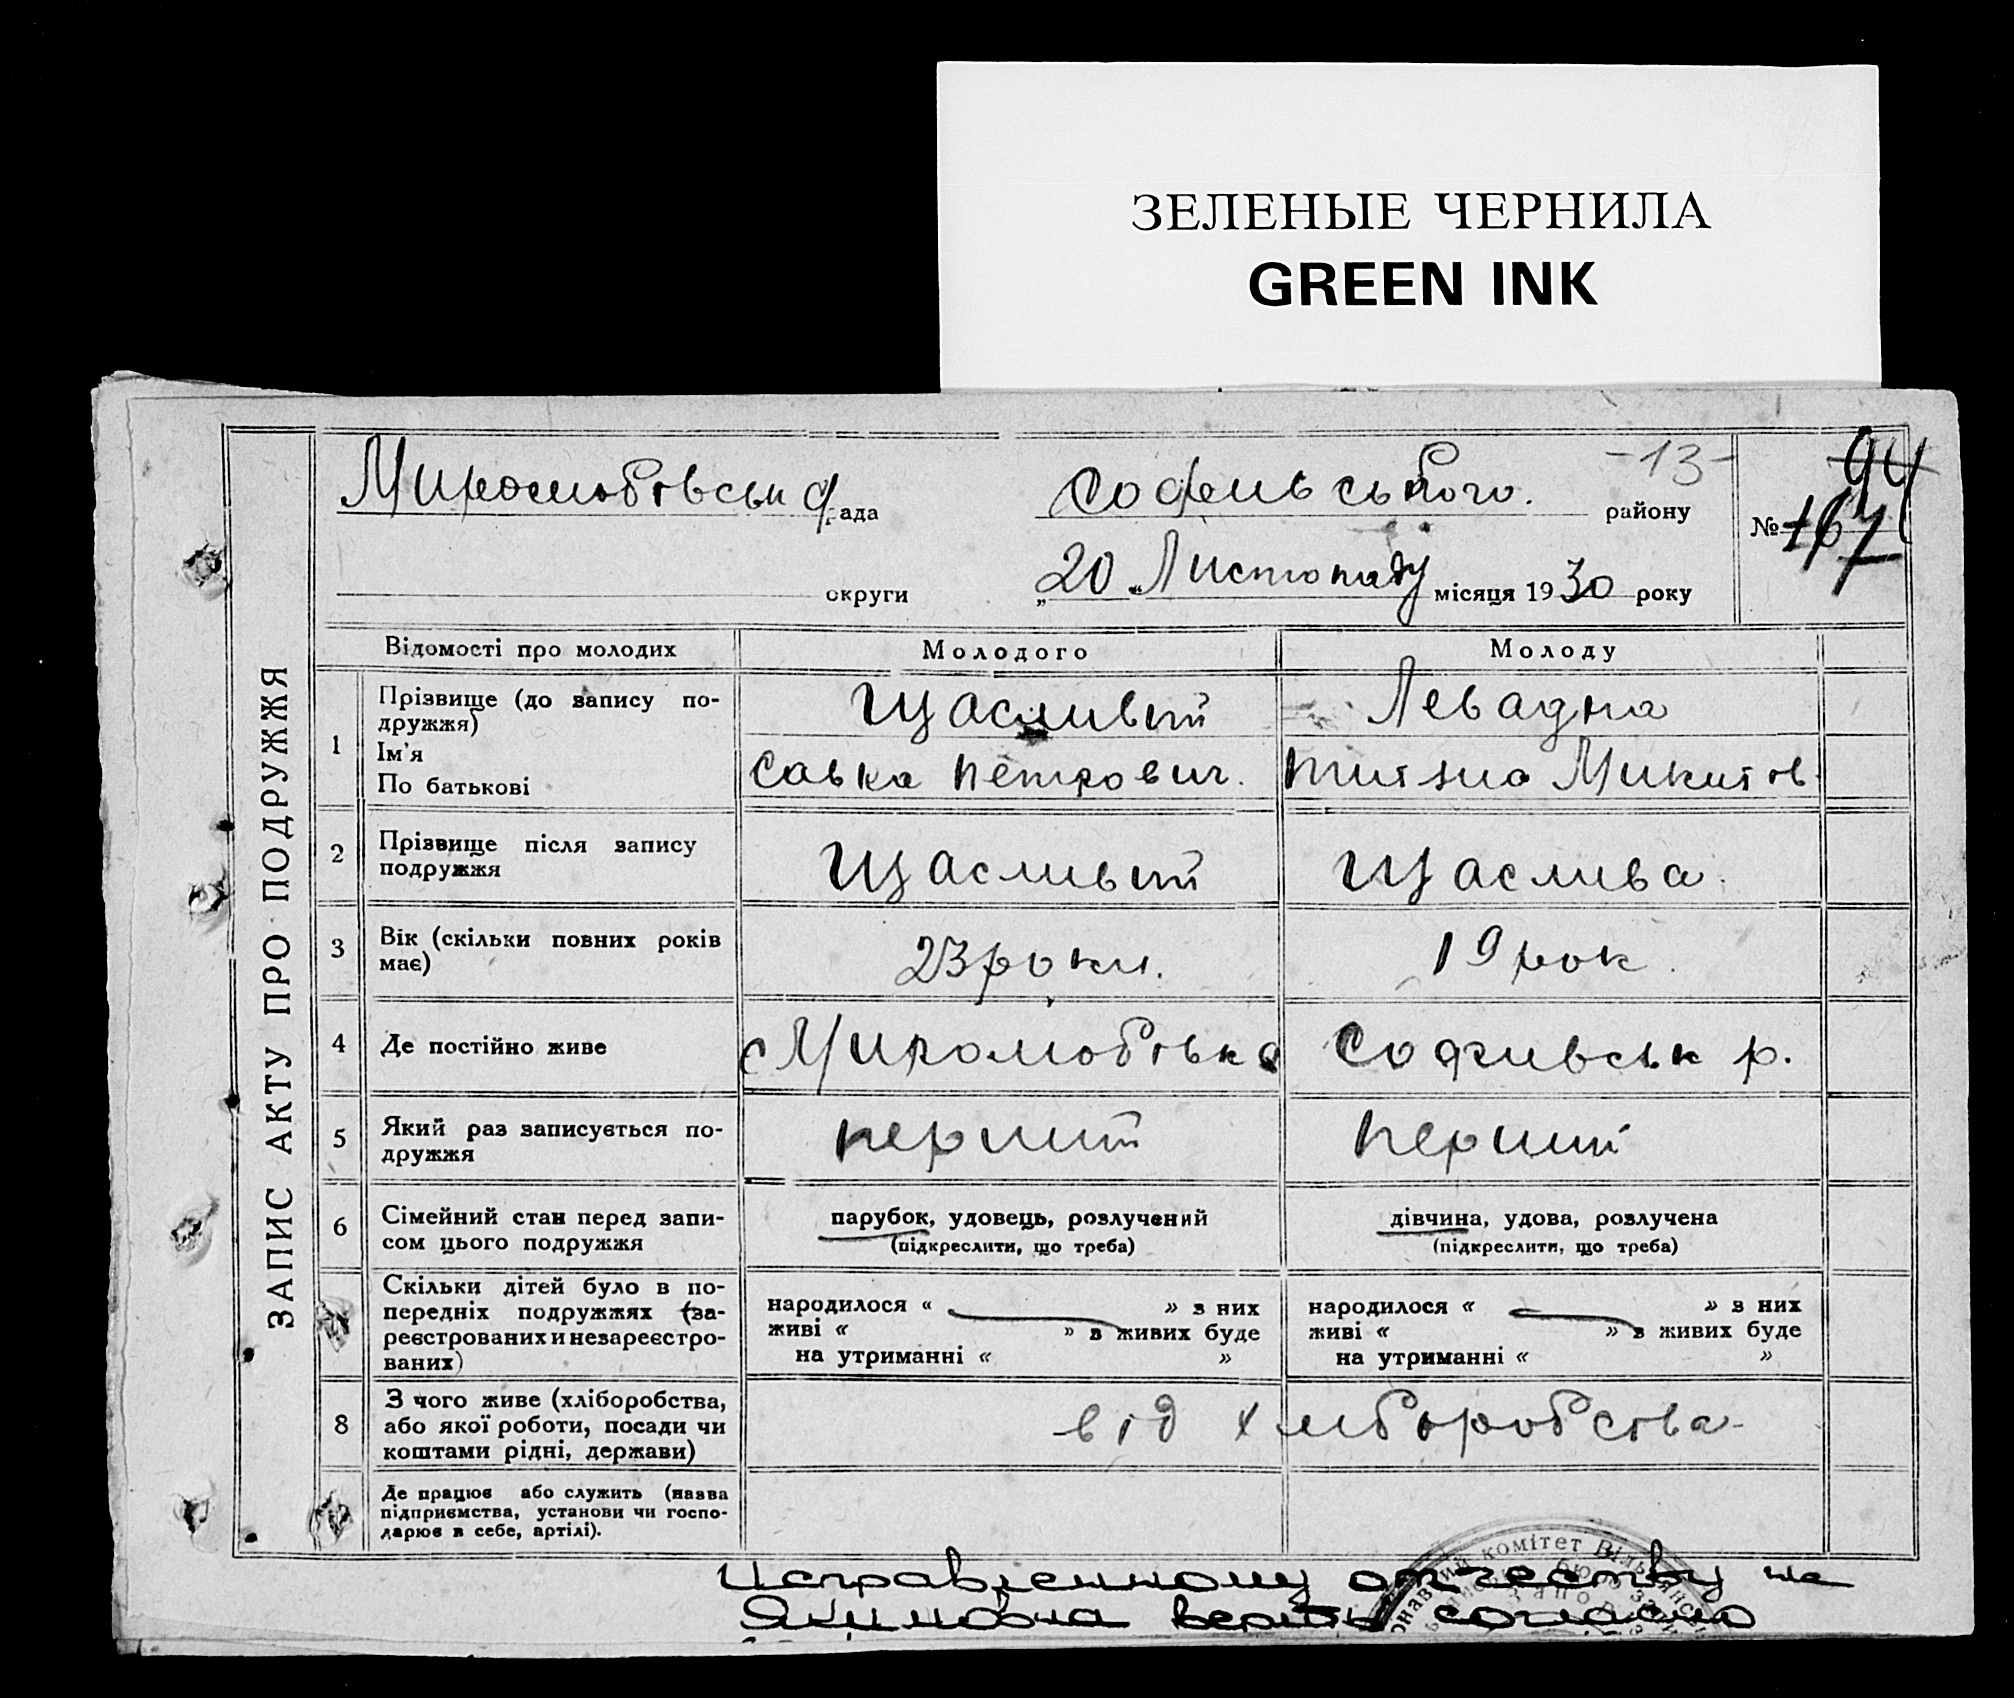 ЗЕЛЕНЫЕ ЧЕРНИЛА
GREEN INK
ЗАПИС АКТУ ПРО ПОДРУЖЖЯ
Миролюбівська рада
Софіївського району
-13-
№ 167
94
округи
„20" Листопаду місяця 1930 року
Відомості про молодих Молодого Молоду
1 Прізвище (до запису по-
дружжя)
Ім'я
По батькові
Щасливий
Савка Петрович.
Левадна
Микитов
2 Прізвище після запису
подружжя
Щасливий
Щаслива
3 Вік (скільки повних років
має)
23 роки.
19 рок.
4 Де постійно живе
с Миролюбівка
Софиівськ р.
5 Який раз записується по-
дружжя
перший
перший
6 Сімейний стан перед запи-
сом цього подружжя
парубок, удовець, розлучений
(підкреслити, що треба)
дівчина, удова, розлучена
(підкреслити, що треба)
Скільки дітей було в по-
передніх подружжях (за-
реєстрованих и незареєстро-
ваних)
народилося « » з них
живі « » в живих буде
на утриманні « »
народилося « » з них
живі « » в живих буде
на утриманні « »
8 З чого живе (хліборобства,
або якої роботи, посади чи
коштами рідні, держави)
від хліборобства
Де працює або служить (назва
підприємства, установи чи госпо-
дарює в себе, артілі).
Исправленному отчеству на
Якимовна верить согласно
комітет Вільнянськ
бюро за